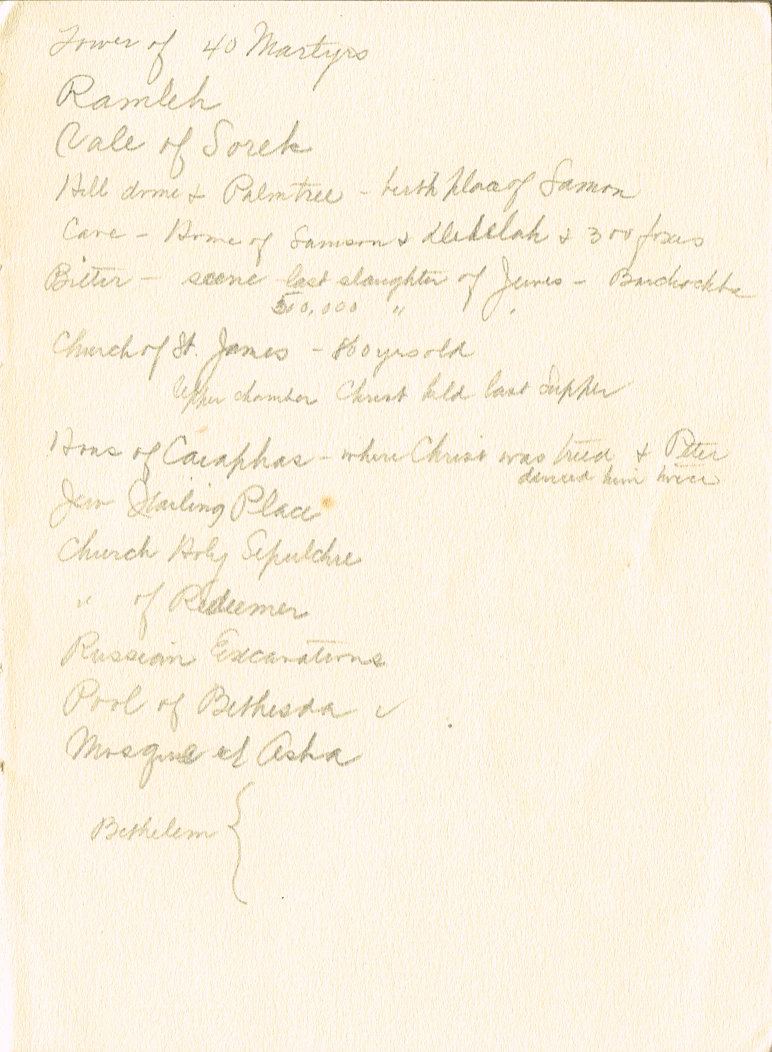 Tower of 40 Martyrs
Ramleh
Vale of Sorek
Hill dome & Palmtree - birth place of Samon
Cave - Home of Samson & Delilah & 300 foxes
Bitter - scene last slaughter of Jews -
500,000 "
Church of St. James - 800 yrs old
Upper chamber Christ held last Supper
Hous of Caiaphas - where Christ was tried & Peter
denied him twice
Jew Wailing Place
Church Holy Sepulchre
" of Redeemer
Russian Excavations
Pool of Bethesda ✓
Mosque el Aska
Bethelem {